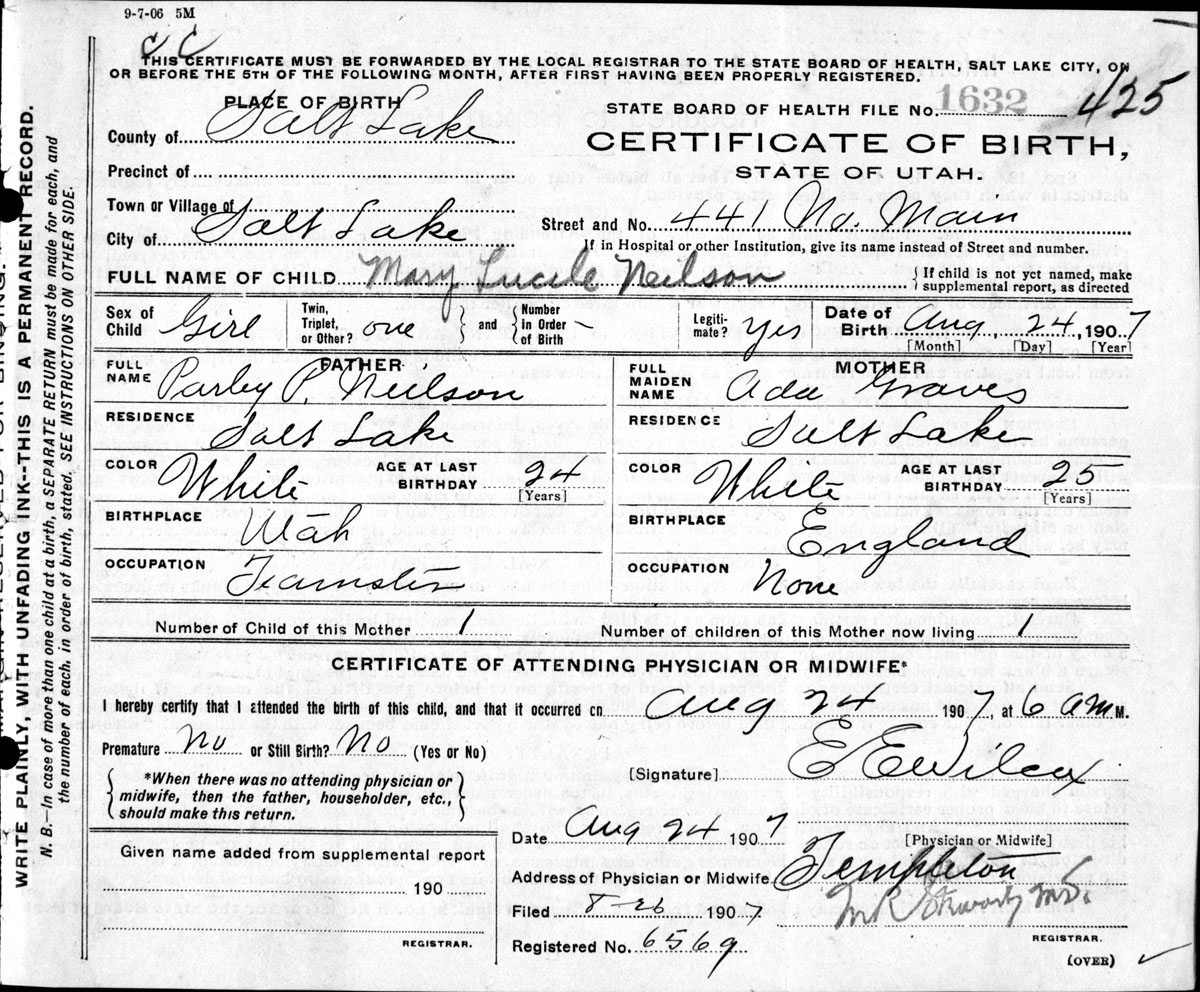 9-7-06 5M
THIS CERTIFICATE MUST BE FORWARDED BY THE LOCAL REGISTRAR TO THE STATE BOARD OF HEALTH, SALT LAKE CITY, ON
OR BEFORE THE 5TH OF THE FOLLOWING MONTH, AFTER FIRST HAVING BEEN PROPERLY REGISTERED.
PLACE OF BIRTH
STATE BOARD OF HEALTH FILE No. 1632 425
County of Salt Lake
CERTIFICATE OF BIRTH,
Precinct of
STATE OF UTAH.
Town or Village of
City of Salt Lake Street and No. 441 No. Main
If in Hospital or other Institution, give its name instead of Street and number.
FULL NAME OF CHILD Mary Lucile Neilson { If child is not yet named, make
supplemental report, as directed
Sex of Child Girl Twin, Triplet, or Other? one } and { Number in Order of Birth – Legiti-mate? Yes Date of Birth Aug 24, 1907
[Month] [Day] [Year]
FATHER
FULL NAME Parley P. Neilson
MOTHER
FULL MAIDEN NAME Ada Graves
RESIDENCE Salt Lake
RESIDENCE Salt Lake
COLOR White AGE AT LAST BIRTHDAY 24 [Years]
COLOR White AGE AT LAST BIRTHDAY 25 [Years]
BIRTHPLACE Utah
BIRTHPLACE England
OCCUPATION Teamster
OCCUPATION None
Number of Child of this Mother 1 Number of children of this Mother now living 1
CERTIFICATE OF ATTENDING PHYSICIAN OR MIDWIFE*
I hereby certify that I attended the birth of this child, and that it occurred on Aug 24 1907, at 6 am M.
Premature No or Still Birth? No (Yes or No)
[Signature] E E Wilcox
{ *When there was no attending physician or
midwife, then the father, householder, etc.,
should make this return. }
Date Aug 24 1907 [Physician or Midwife]
Given name added from supplemental report
Address of Physician or Midwife Templeton
190
Filed 8-26 1907
REGISTRAR.
Registered No. 6569
REGISTRAR.
(OVER)
WRITE PLAINLY, WITH UNFADING INK--THIS IS A PERMANENT RECORD.
N. B.—In case of more than one child at a birth, a SEPARATE RETURN must be made for each, and
the number of each, in order of birth, stated, SEE INSTRUCTIONS ON OTHER SIDE.